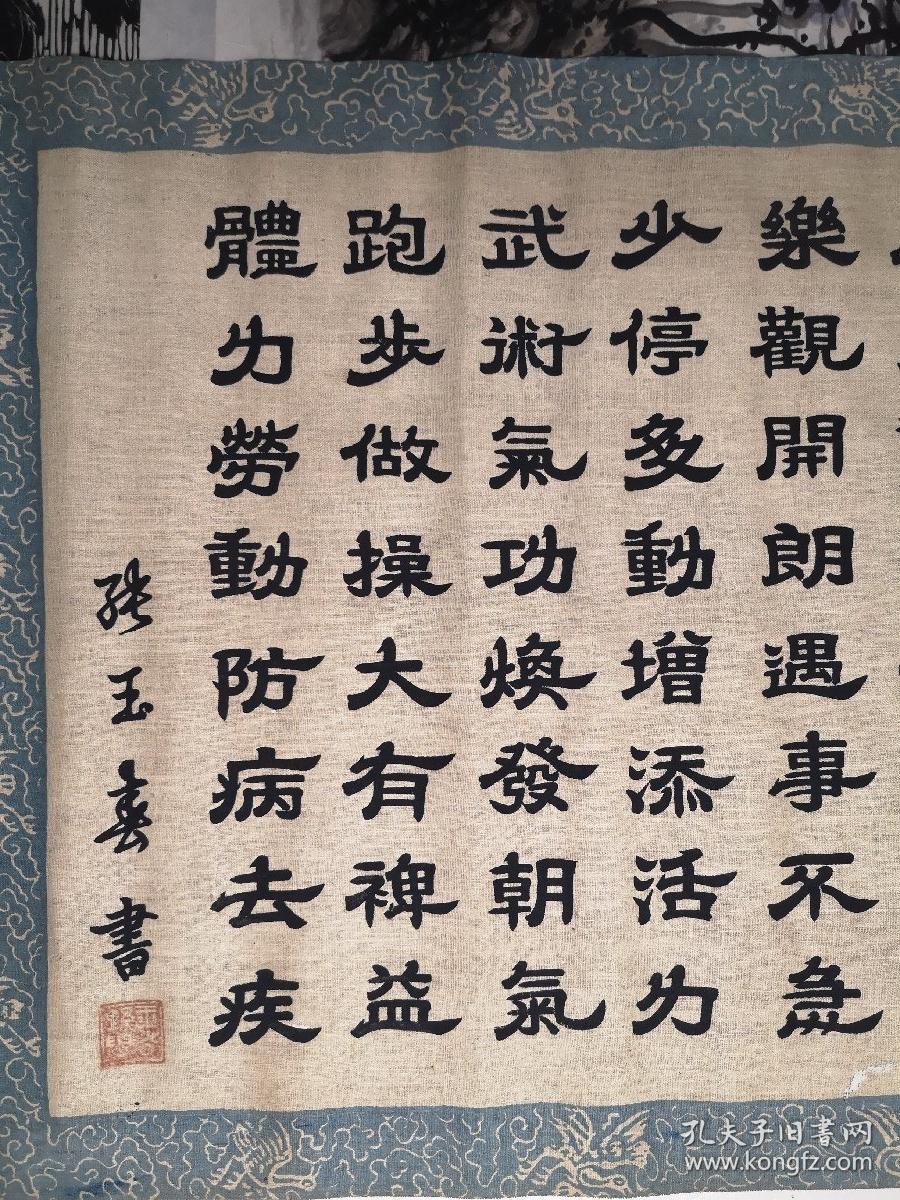 樂觀開朗遇事不急
少停多動增添活力
武術氣功煥發朝氣
跑步做操大有裨益
體力勞動防病去疾
張玉喜書
孔夫子旧書网
www.kongfz.com